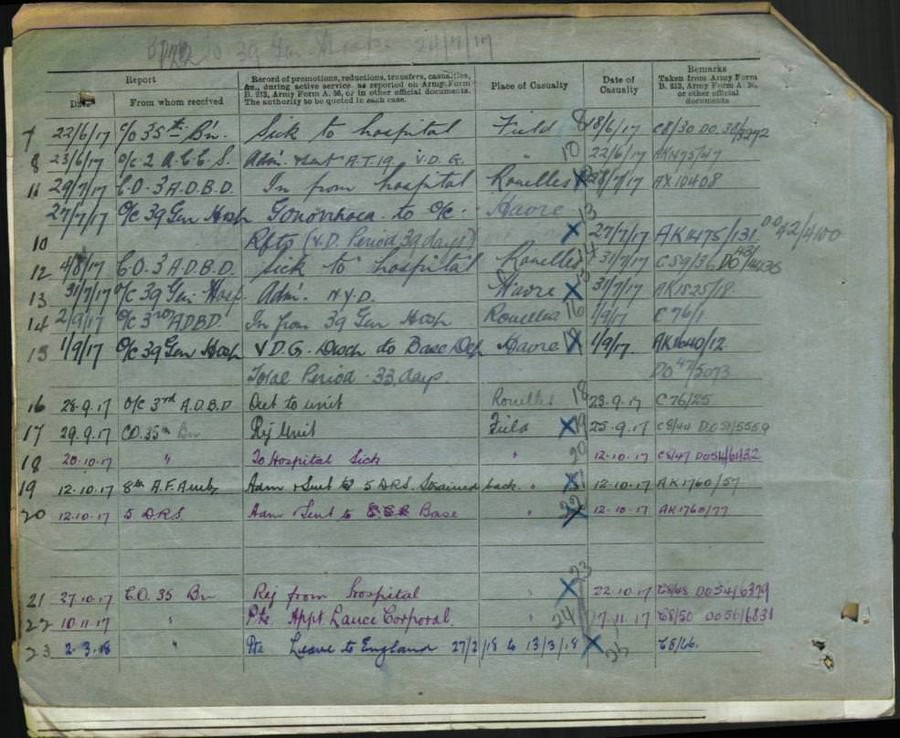 to 39 Gen Hosp. 24/7/17
Report
Record of promotions, reductions, transfers, casualties,
&c., during active service, as reported on Army Form
B. 213, Army Form A. 36, or in other official documents.
The authority to be quoted in each case.
Place of Casualty
Date of
Casualty
Remarks
Taken from Army Form
B. 213, Army Form A. 36,
or other official
documents
Date
From whom received
7 22/6/17 O/C 35th Bn. Sick to hospital Field 8 18/6/17 C8/30 DO.
8 23/6/17 O/C 2 A.C.C.S. Adm. & sent A.T.19 V.D.G. " 10 22/6/17
11 29/7/17 C.O. 3 A.D.B.D. In from hospital Rouelles X 28/7/17 AX10408
27/7/17 O/C 39 Gen Hosp Gonorrhoea to O/C Havre 13
10 Rfts (V.D. Period 39 days) X 27/7/17 AK1475/131
12 4/8/17 C.O. 3 A.D.B.D. Sick to hospital Rouelles 14 31/7/17 C59/36 DO
13 31/7/17 O/C 39 Gen. Hosp. Adm. N.Y.D. Havre X 31/7/17 AK1525/18
14 2/9/17 O/C 3rd ADBD. In from 39 Gen Hosp Rouelles 16 1/9/17 C76/1
15 1/9/17 O/C 39 Gen Hosp V.D.G. Disch to Base Dep Havre X 1/9/17. AK1640/12
Total Period - 33 days. DO 47/5073
16 28.9.17 O/C 3rd A.D.B.D Out to unit Rouelles 18 23.9.17 C76/25
17 29.9.17 CO. 35th Bn Rej Unit Field X 19 25.9.17 C8/44 DO 51/5559
18 20.10.17 " To Hospital Sick " 20 12.10.17 C8/47
19 12.10.17 8th A.F.Amb Adm & Sent to 5 D.R.S. Strained back. " X 12.10.17 AK1760/57
20 12.10.17 5 D.R.S. Adm & Sent to Base " 22 X 12.10.17 AK1760/77
23
21 27.10.17 C.O. 35 Bn Rej from Hospital " X 22.10.17 DO54/6379
22 10.11.17 " Pte Appt. Lance Corporal. " 24 7.11.17 C8/50 DO56/6831
23 2.3.18 " Pte Leave to England 27/2/18 to 13/3/18 X 25 C8/66.